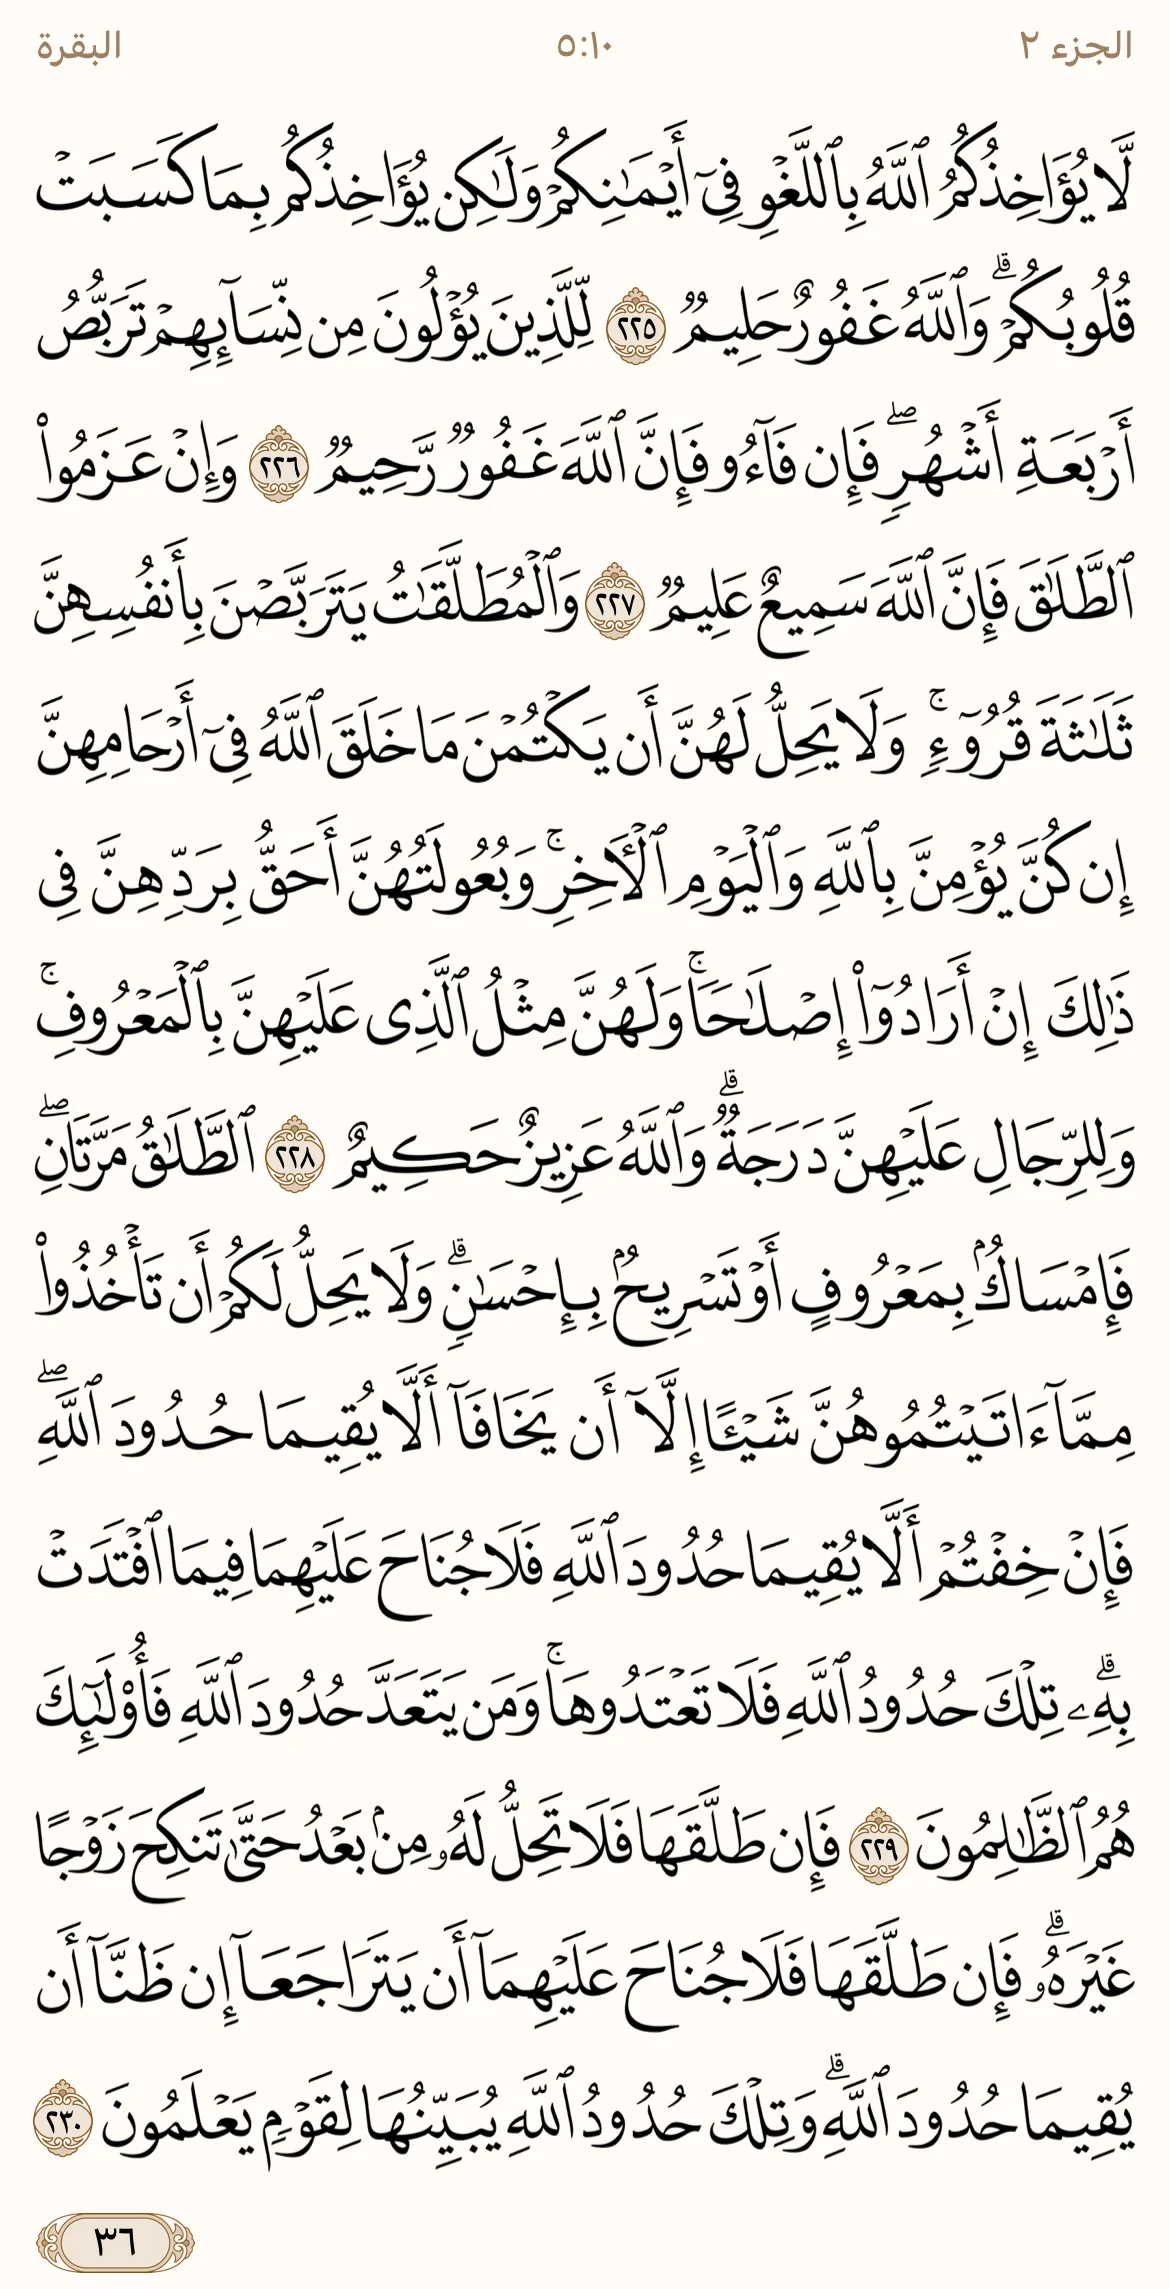 الجزء ٢
٥:١٠
البقرة
لَّا يُؤَاخِذُكُمُ ٱللَّهُ بِٱللَّغْوِ فِىٓ أَيْمَـٰنِكُمْ وَلَـٰكِن يُؤَاخِذُكُم بِمَا كَسَبَتْ
قُلُوبُكُمْ ۗ وَٱللَّهُ غَفُورٌ حَلِيمٌ ٢٢٥ لِّلَّذِينَ يُؤْلُونَ مِن نِّسَآئِهِمْ تَرَبُّصُ
أَرْبَعَةِ أَشْهُرٍ ۖ فَإِن فَآءُو فَإِنَّ ٱللَّهَ غَفُورٌ رَّحِيمٌ ٢٢٦ وَإِنْ عَزَمُوا۟
ٱلطَّلَـٰقَ فَإِنَّ ٱللَّهَ سَمِيعٌ عَلِيمٌ ٢٢٧ وَٱلْمُطَلَّقَـٰتُ يَتَرَبَّصْنَ بِأَنفُسِهِنَّ
ثَلَـٰثَةَ قُرُوٓءٍ ۚ وَلَا يَحِلُّ لَهُنَّ أَن يَكْتُمْنَ مَا خَلَقَ ٱللَّهُ فِىٓ أَرْحَامِهِنَّ
إِن كُنَّ يُؤْمِنَّ بِٱللَّهِ وَٱلْيَوْمِ ٱلْـَٔاخِرِ ۚ وَبُعُولَتُهُنَّ أَحَقُّ بِرَدِّهِنَّ فِى
ذَٰلِكَ إِنْ أَرَادُوٓا۟ إِصْلَـٰحًا ۚ وَلَهُنَّ مِثْلُ ٱلَّذِى عَلَيْهِنَّ بِٱلْمَعْرُوفِ ۚ
وَلِلرِّجَالِ عَلَيْهِنَّ دَرَجَةٌ ۗ وَٱللَّهُ عَزِيزٌ حَكِيمٌ ٢٢٨ ٱلطَّلَـٰقُ مَرَّتَانِ ۖ
فَإِمْسَاكٌۢ بِمَعْرُوفٍ أَوْ تَسْرِيحٌۢ بِإِحْسَـٰنٍ ۗ وَلَا يَحِلُّ لَكُمْ أَن تَأْخُذُوا۟
مِمَّآ ءَاتَيْتُمُوهُنَّ شَيْـًٔا إِلَّآ أَن يَخَافَآ أَلَّا يُقِيمَا حُدُودَ ٱللَّهِ ۖ
فَإِنْ خِفْتُمْ أَلَّا يُقِيمَا حُدُودَ ٱللَّهِ فَلَا جُنَاحَ عَلَيْهِمَا فِيمَا ٱفْتَدَتْ
بِهِۦ ۗ تِلْكَ حُدُودُ ٱللَّهِ فَلَا تَعْتَدُوهَا ۚ وَمَن يَتَعَدَّ حُدُودَ ٱللَّهِ فَأُو۟لَـٰٓئِكَ
هُمُ ٱلظَّـٰلِمُونَ ٢٢٩ فَإِن طَلَّقَهَا فَلَا تَحِلُّ لَهُۥ مِنۢ بَعْدُ حَتَّىٰ تَنكِحَ زَوْجًا
غَيْرَهُۥ ۗ فَإِن طَلَّقَهَا فَلَا جُنَاحَ عَلَيْهِمَآ أَن يَتَرَاجَعَآ إِن ظَنَّآ أَن
يُقِيمَا حُدُودَ ٱللَّهِ ۗ وَتِلْكَ حُدُودُ ٱللَّهِ يُبَيِّنُهَا لِقَوْمٍ يَعْلَمُونَ ٢٣٠
٣٦